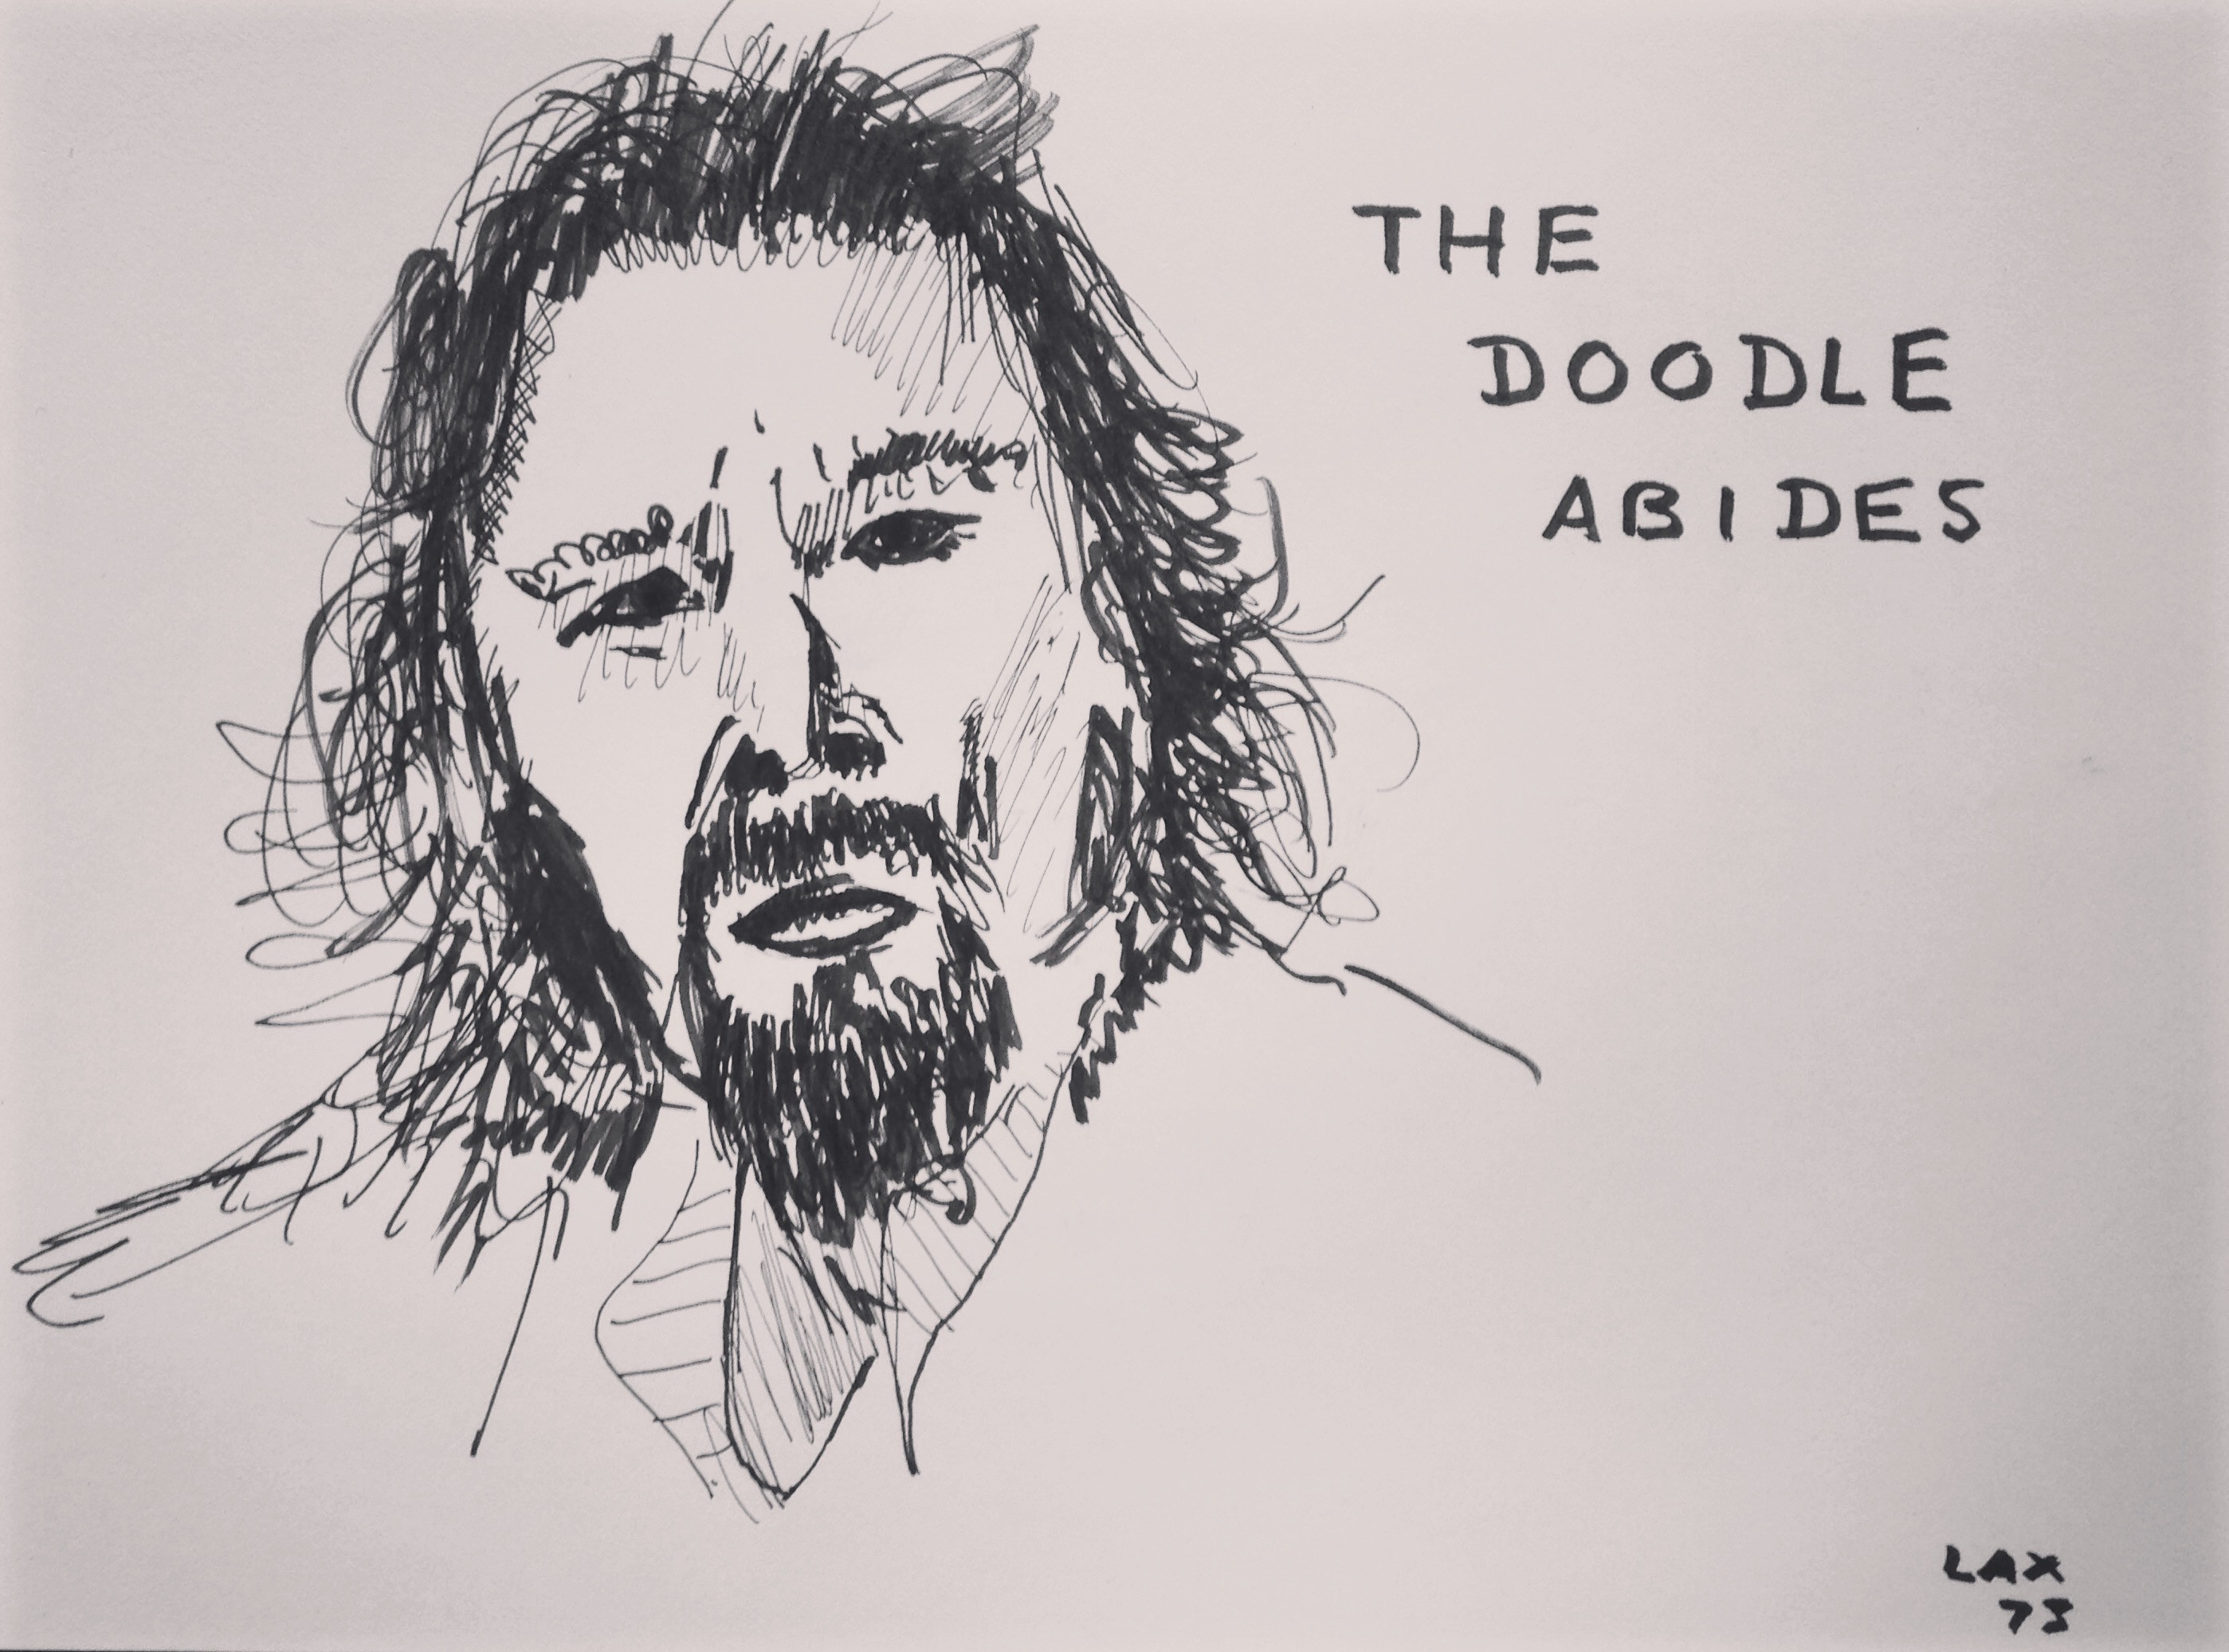 THE
DOODLE
ABIDES
LAX
73